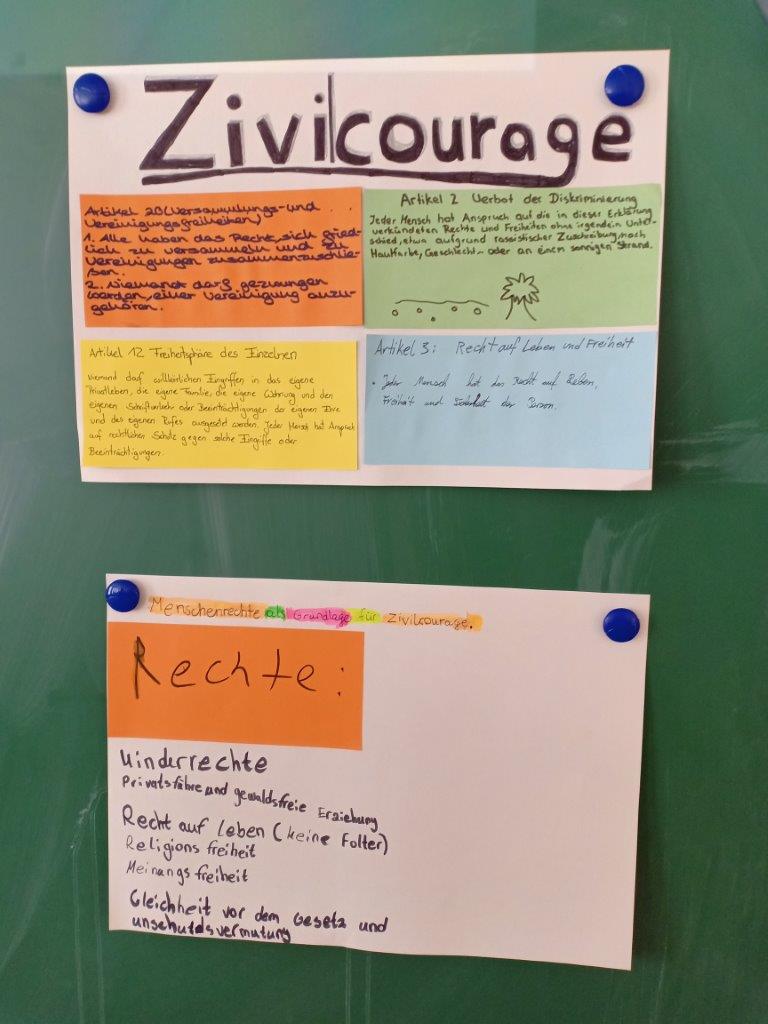 Zivilcourage
Artikel 20 (Versammlungs- und
Vereinigungsfreiheiten)
1. Alle haben das Recht, sich fried-
lich zu versammeln und zu
Vereinigungen zusammenzuschlie-
ßen.
2. Niemand darf gezwungen
werden, einer Vereinigung anzu-
gehören.
Artikel 2 Verbot der Diskriminierung
Jeder Mensch hat Anspruch auf die in dieser Erklärung
verkündeten Rechte und Freiheiten ohne irgendein Unter-
schied, etwa aufgrund rassistischer Zuschreibung, nach
Hautfarbe, Geschlecht - oder an einem sonnigen Strand.
Artikel 12 Freiheitsphäre des Einzelnen
Niemand darf willkürlichen Eingriffen in das eigene
Privatleben, die eigene Familie, die eigene Wohnung und den
eigenen Schriftverkehr oder Beeinträchtigungen der eigenen Ehre
und des eigenen Rufes ausgesetzt werden. Jeder Mensch hat Anspruch
auf rechtlichen Schutz gegen solche Eingriffe oder
Beeinträchtigungen.
Artikel 3: Recht auf Leben und Freiheit
• Jeder Mensch hat das Recht auf Leben,
Freiheit und Sicherheit der Person.
Menschenrechte als Grundlage für Zivilcourage.
Rechte:
Kinderrechte
Privatsfähre und gewaldsfreie Erziehung
Recht auf Leben (keine Folter)
Religions freiheit
Meinungs freiheit
Gleichheit vor dem Gesetz und
unschuldsvermutung